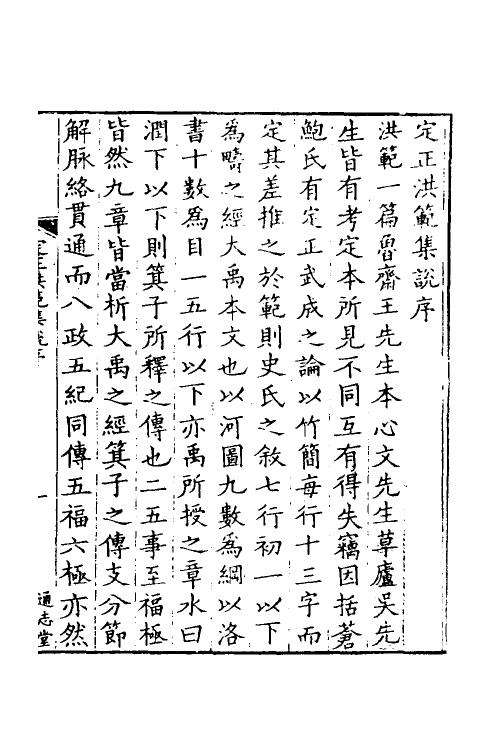 定正洪範集說序
洪範一篇魯齋王先生本心文先生草廬吳先
生皆有考定本所見不同互有得失竊因括蒼
鮑氏有定正武成之論以竹簡每行十三字而
定其差推之於範則史氏之敘七行初一以下
爲疇之經大禹本文也以河圖九數爲綱以洛
書十數爲目一五行以下亦禹所授之章水曰
潤下以下則箕子所釋之傳也二五事至福極
皆然九章皆當析大禹之經箕子之傳支分節
解脉絡貫通而八政五紀同傳五福六極亦然
定正洪範集說序
一
通志堂